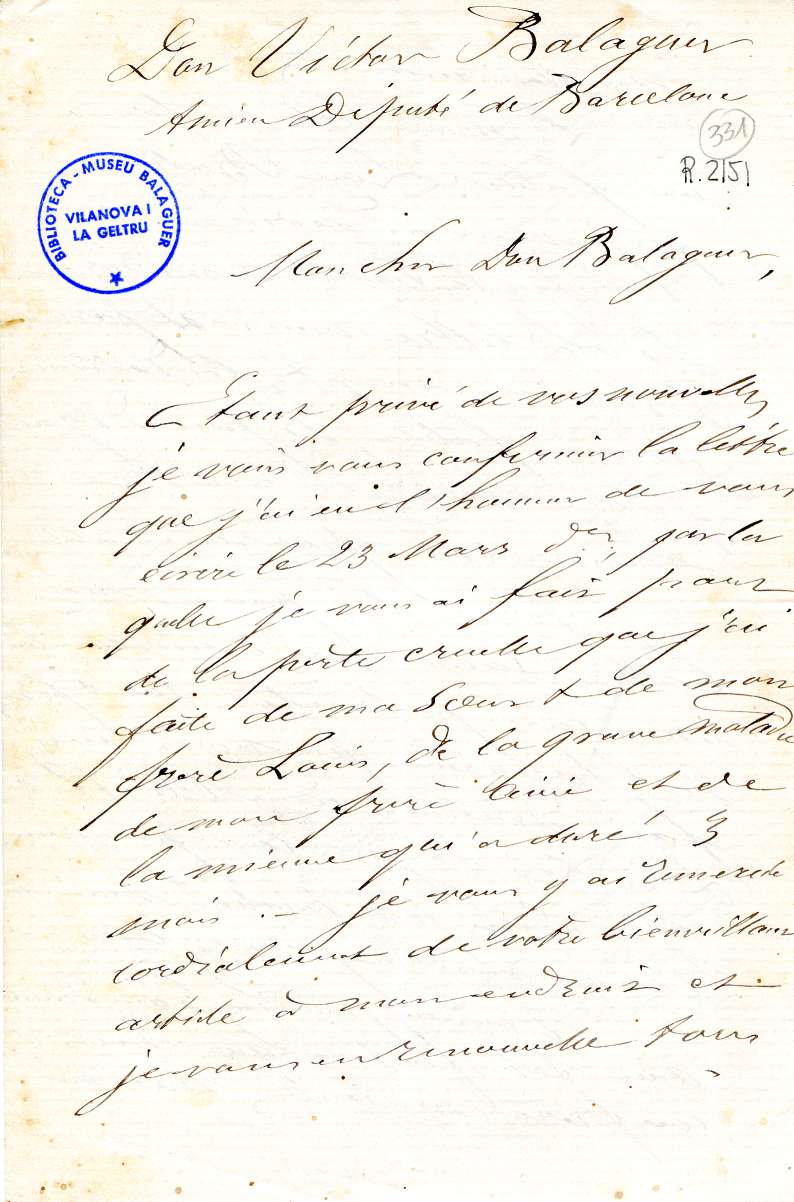 Don Victor Balaguer
Ancien Député de Barcelone
331
R. 2151
BIBLIOTECA - MUSEU BALAGUER
VILANOVA I
LA GELTRU
Mon cher Don Balaguer,
Etant privé de vos nouvelles
je vais vous confirmer la lettre
que j'ai eu l'honneur de vous
écrire le 23 Mars dr, par la
quelle je vous ai fait part
de la perte cruelle que j'ai
faite de ma Sœur & de mon
frère Louis, de la grave maladie
de mon frère ainé et de
la mienne qui a duré 3
mois. – je vous y ai remercié
cordialement de votre bienveillant
article à mon endroit et
je vous en renouvelle tous